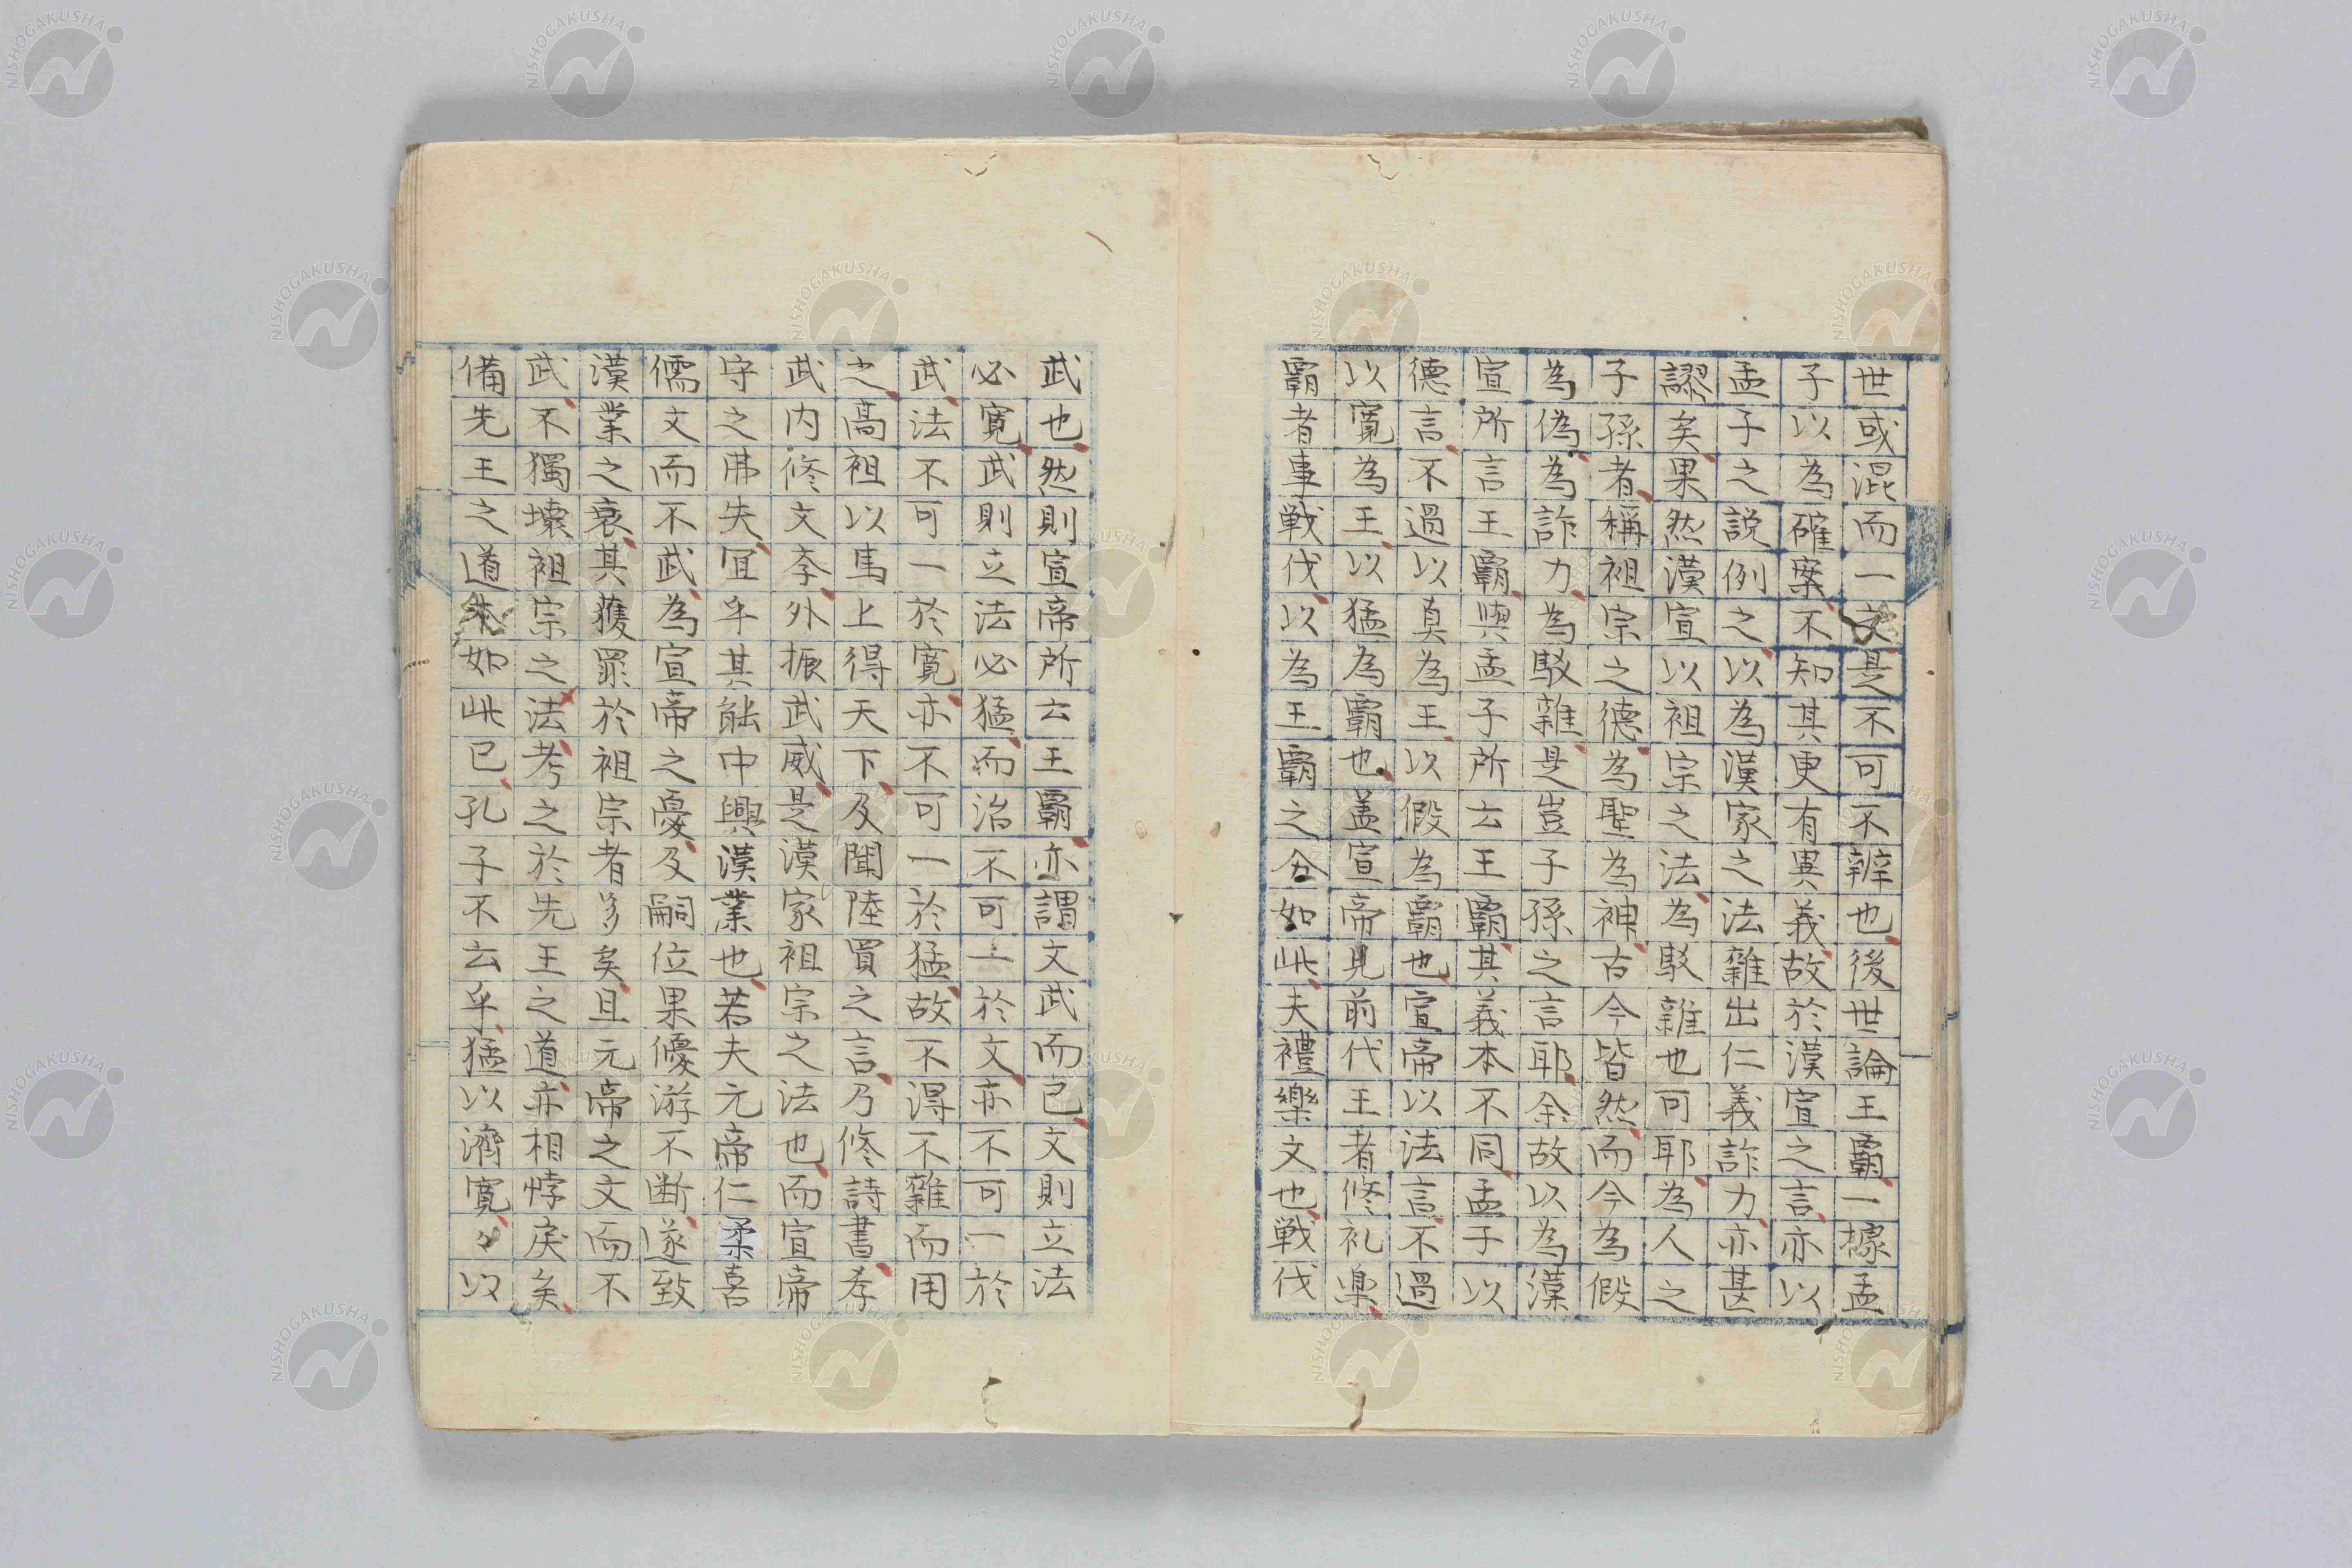 世或混而一之是不可不辨也後世論王覇一據孟
子以為確案不知其更有異義故於漢宣之言亦以
孟子之説例之以為漢家之法雜出仁義詐力亦甚
謬矣果然漢宣以祖宗之法為駁雜也可耶為人之
子孫者稱祖宗之德為聖為神古今皆然而今為假
為偽為詐力為駁雜是豈子孫之言耶余故以為漢
宣所言王覇與孟子所云王覇其義本不同孟子以
德言不過以真為王以假為覇也宣帝以法言不過
以寛為王以猛為覇也盖宣帝見前代王者修礼楽
覇者事戦伐以為王覇之分如此夫禮樂文也戦伐
武也然則宣帝所云王覇亦謂文武而已文則立法
必寛武則立法必猛而治不可一於文亦不可一於
武法不可一於寛亦不可一於猛故不得不雜而用
之高祖以馬上得天下及聞陸賈之言乃修詩書孝
武内修文孝外振武威是漢家祖宗之法也而宣帝
守之弗失宜乎其能中興漢業也若夫元帝仁柔喜
儒文而不武為宣帝之憂及嗣位果優游不断遂致
漢業之衰其獲罪於祖宗者多矣且元帝之文而不
武不獨壊祖宗之法考之於先王之道亦相悖戻矣
備先王之道如此已孔子不云乎猛以濟寛々以
NISHOGAKUSHA